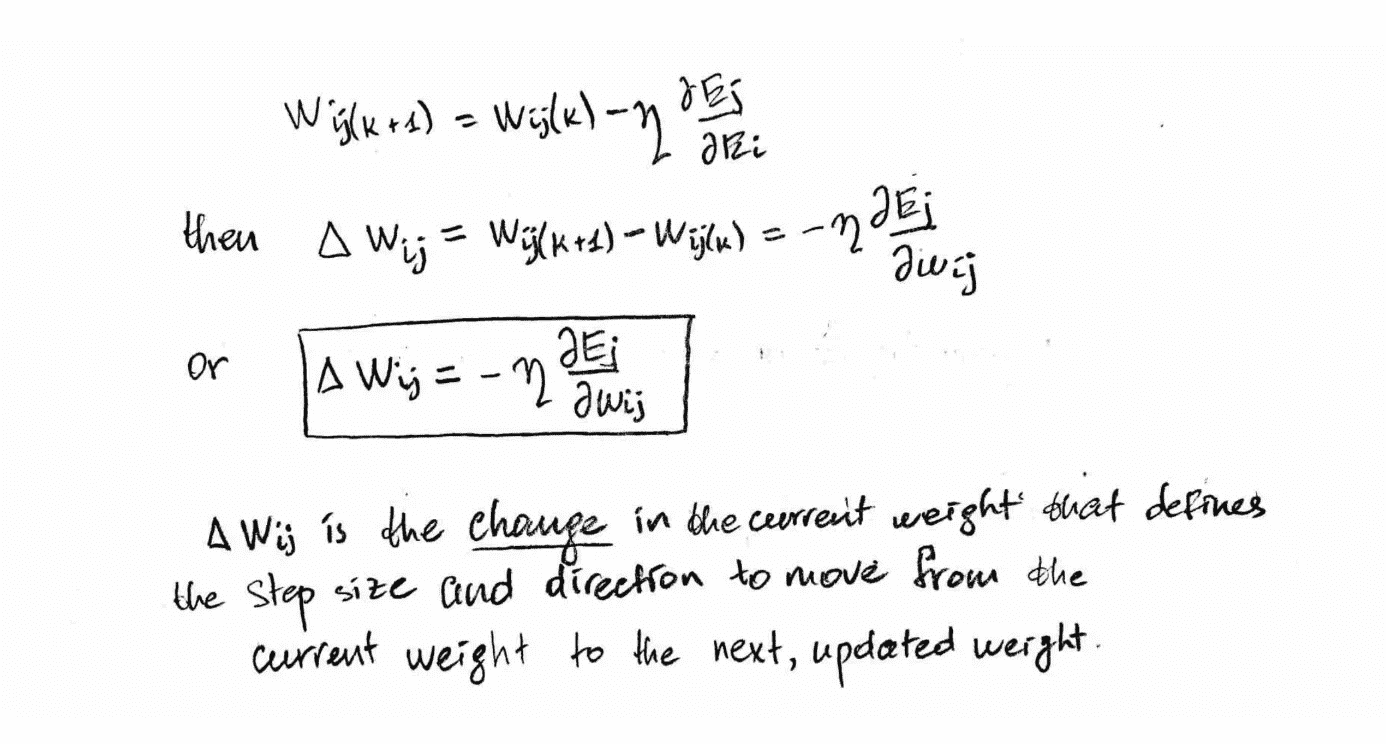 Wij(k+1) = Wij(k) - η ∂Ej/∂Ei
then Δ Wij = Wij(k+1) - Wij(k) = - η ∂Ej/∂wij
or Δ Wij = - η ∂Ej/∂wij
Δ Wij is the change in the current weight that defines
the step size and direction to move from the
current weight to the next, updated weight.